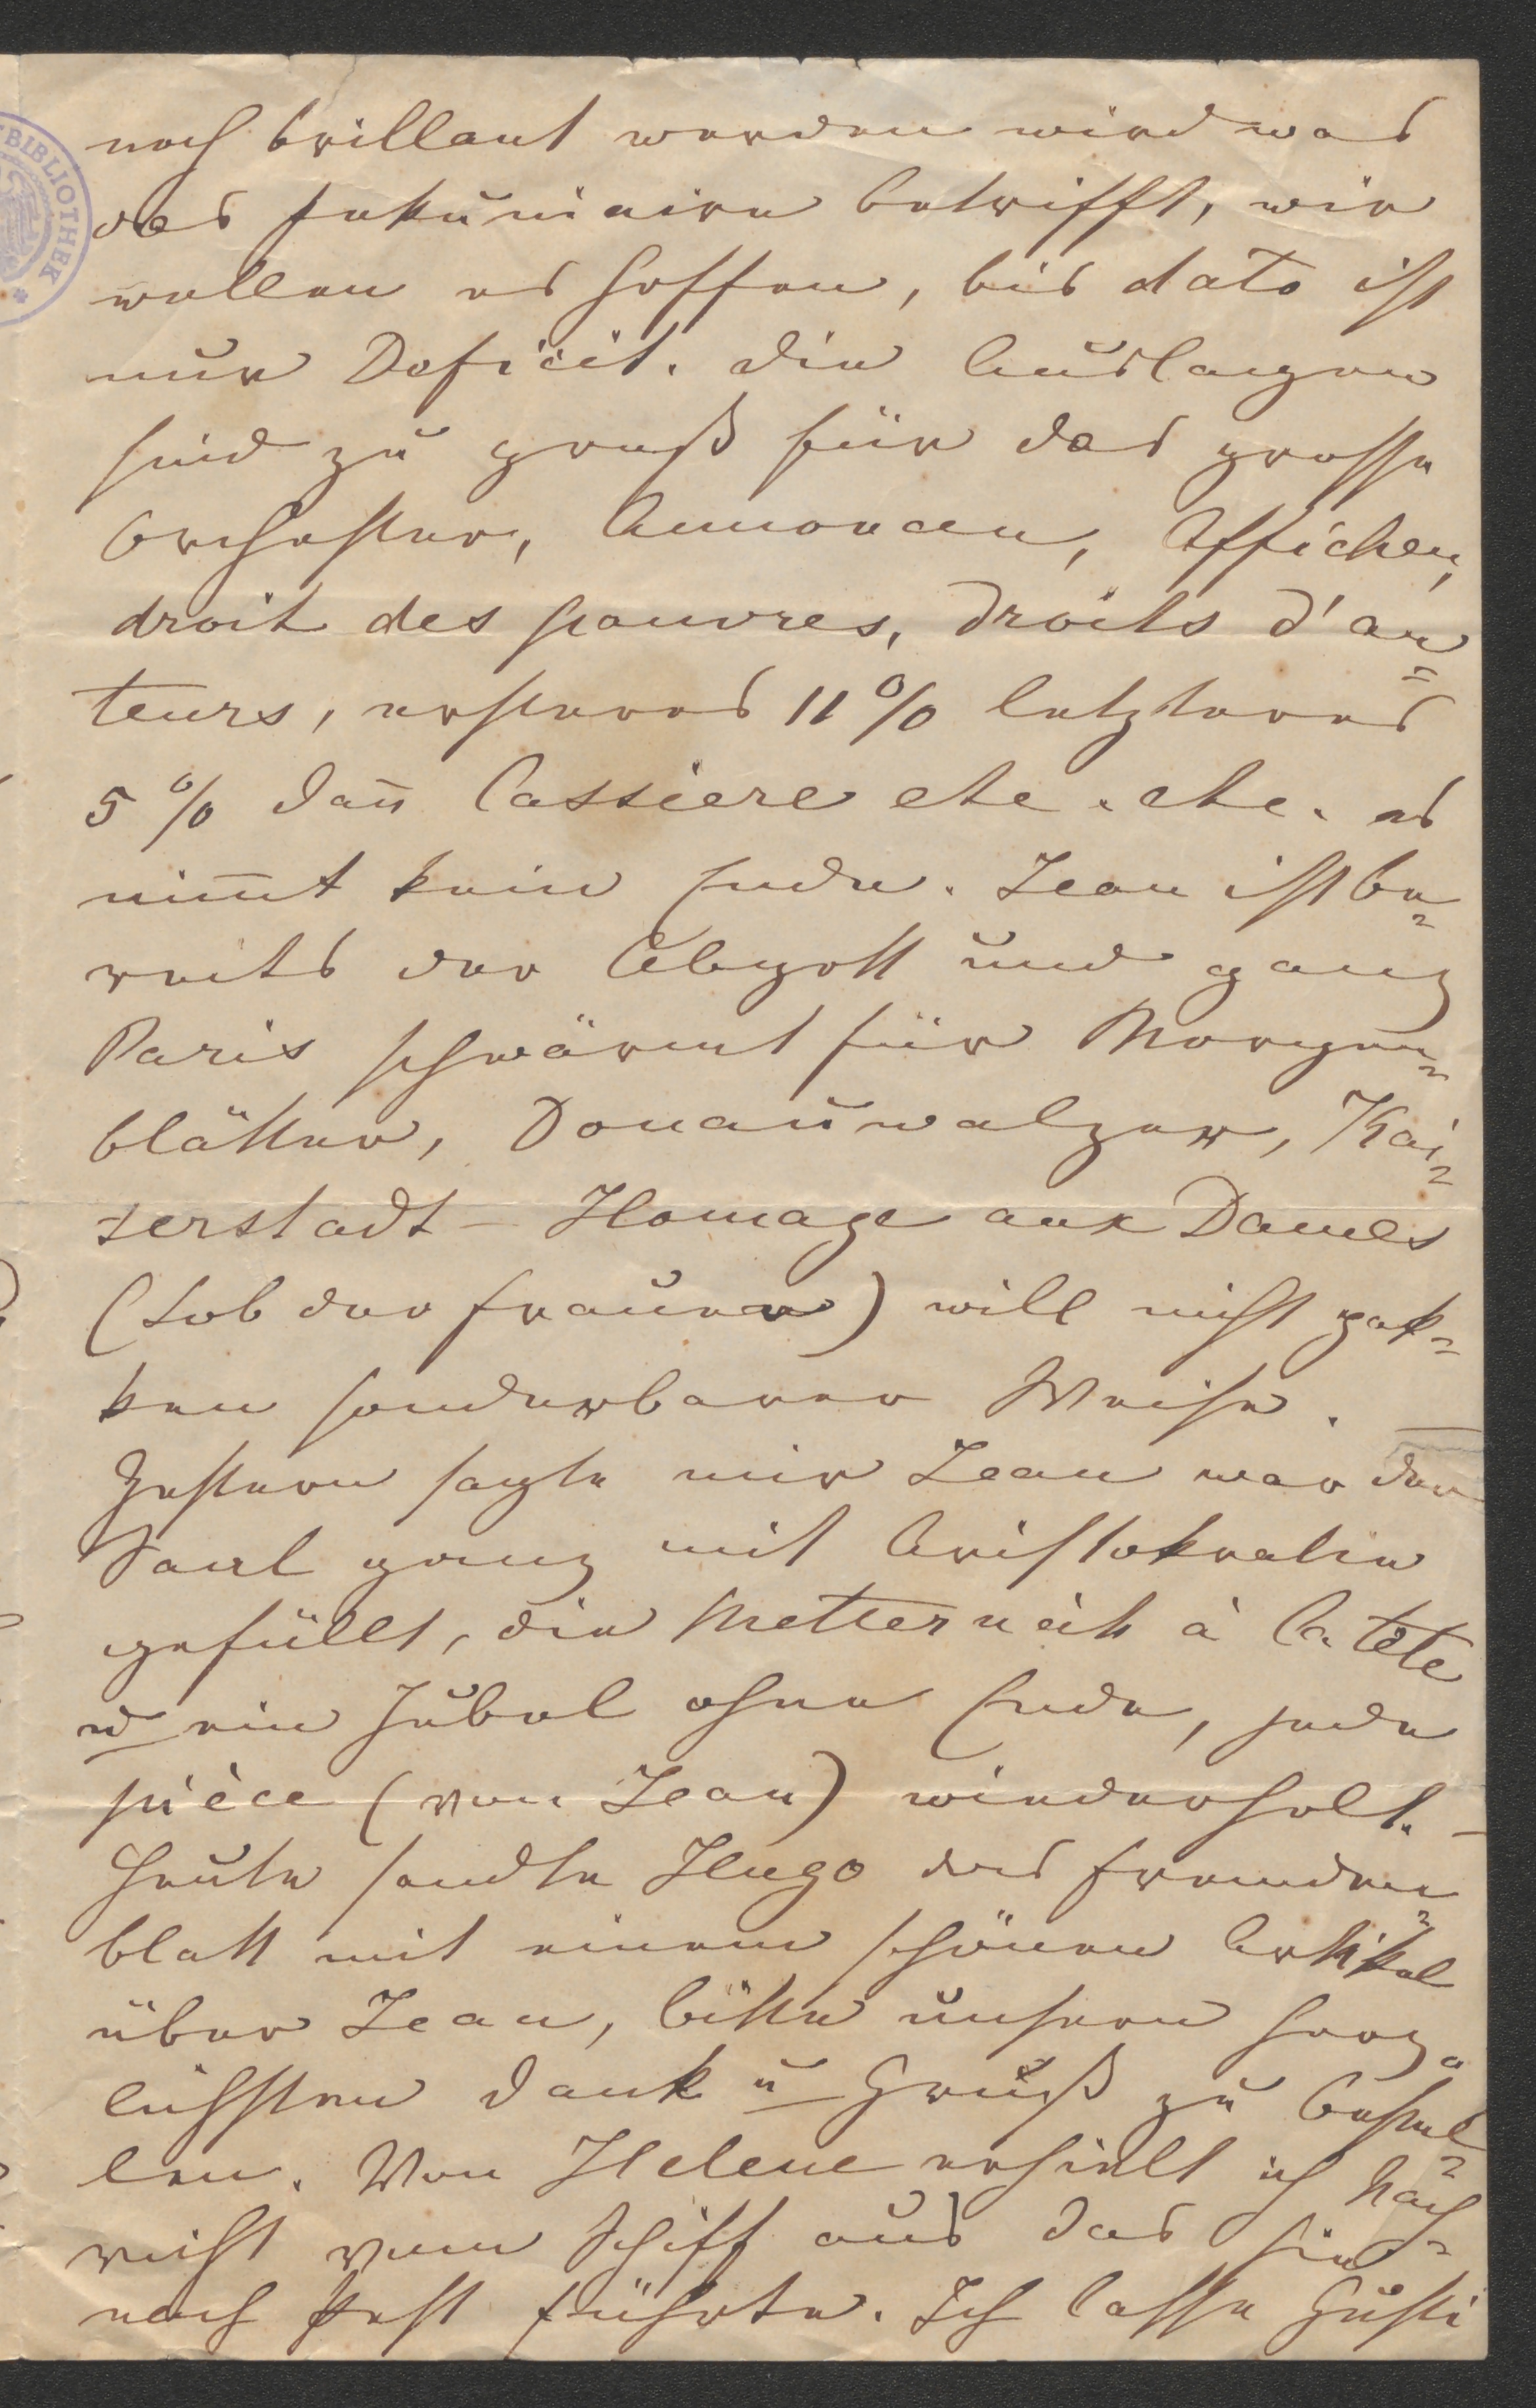 BIBLIOTHEK
noch brillant werden wird was
das pekuniaire betrifft, wir
wollen es hoffen, bis dato ist
nur Deficit. Die Auslagen
sind zu groß für das grosse
Orchester, Annoncen, Affichen,
droit des pauvres, droits d'au=
teurs, ersteres 11% letzteres
5% dan̅ Cassiere etc. etc. es
nim̅t kein Ende. Jean ist be=
reits der Abgott und ganz
Paris schwärmt für Morgen=
blätter, Donauwalzer, Kai=
serstadt – Homage aux Dames
(Lob der Frauen) will nicht pak=
ken sonderbarer Weise. –
Gestern sagte mir Jean war der
Saal ganz mit Aristokratie
gefüllt, die Metternich à la tête
u ein Jubel ohne Ende, jede
pièce (von Jean) wiederholt. –
Heute sandte Hugo das Fremden=
blatt mit einem schönen Artikel
über Jean, bitte unsern herz=
lichsten Dank u Gruß zu bestel=
len. Von Helene erhielt ich Nach=
richt vom Schiff aus das sie
nach Pest führte. Ich lasse Gusti